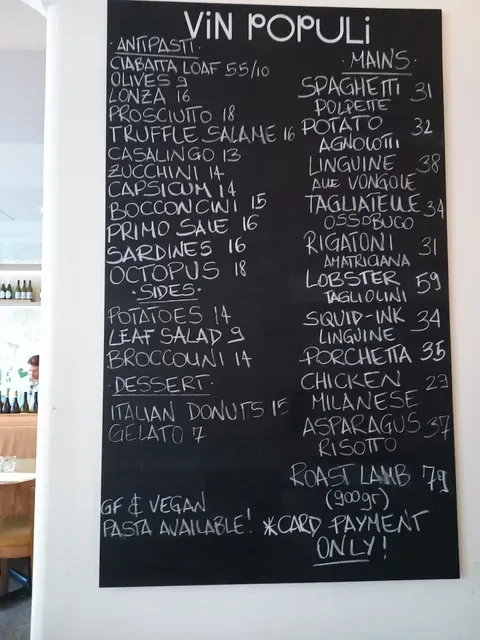 ViN POPULi
· ANTIPASTI ·
CIABATTA LOAF 5.5/10
OLIVES 9
LONZA 16
PROSCIUTTO 18
TRUFFLE SALAME 16
CASALINGO 13
ZUCCHINI 14
CAPSICUM 14
BOCCONCINI 15
PRIMO SALE 16
SARDINES 16
OCTOPUS 18
· SIDES ·
POTATOES 14
LEAF SALAD 9
BROCCOLINI 14
· DESSERT ·
ITALIAN DONUTS 15
GELATO 7
GF & VEGAN
PASTA AVAILABLE!
· MAINS ·
SPAGHETTI 31
POLPETTE
POTATO 32
AGNOLOTTI
LINGUINE 38
ALLE VONGOLE
TAGLIATELLE 34
OSSOBUCO
RIGATONI 31
AMATRICIANA
LOBSTER 59
TAGLIOLINI
SQUID-INK 34
LINGUINE
PORCHETTA 35
CHICKEN 29
MILANESE
ASPARAGUS 37
RISOTTO
ROAST LAMB 79
(900gr)
*CARD PAYMENT
ONLY!